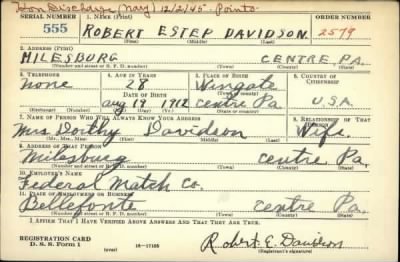 Hon Discharge (Navy) 12/2/45 - Points
SERIAL NUMBER 1. NAME (Print) ORDER NUMBER
555 ROBERT ESTEP DAVIDSON 2579
(First) (Middle) (Last)
2. ADDRESS (Print)
MILESBURG CENTRE PA.
(Number and street or R. F. D. number) (Town) (County) (State)
3. TELEPHONE 4. AGE IN YEARS 5. PLACE OF BIRTH 6. COUNTRY OF CITIZENSHIP
none 28 Wingate
DATE OF BIRTH (Town or county)
Aug 19 1912 Centre Pa U.S.A.
(Exchange) (Number) (Mo.) (Day) (Yr.) (State or country)
7. NAME OF PERSON WHO WILL ALWAYS KNOW YOUR ADDRESS 8. RELATIONSHIP OF THAT PERSON
Mrs Dorthy Davidson Wife
(Mr., Mrs., Miss) (First) (Middle) (Last)
9. ADDRESS OF THAT PERSON
Milesburg Centre Pa.
(Number and street or R. F. D. number) (Town) (County) (State)
10. EMPLOYER'S NAME
Federal Match Co.
11. PLACE OF EMPLOYMENT OR BUSINESS
Bellefonte Centre Pa.
(Number and street or R. F. D. number) (Town) (County) (State)
I AFFIRM THAT I HAVE VERIFIED ABOVE ANSWERS AND THAT THEY ARE TRUE.
REGISTRATION CARD
D. S. S. Form 1 (over) 16—17105 Robert E. Davidson
(Registrant's signature)